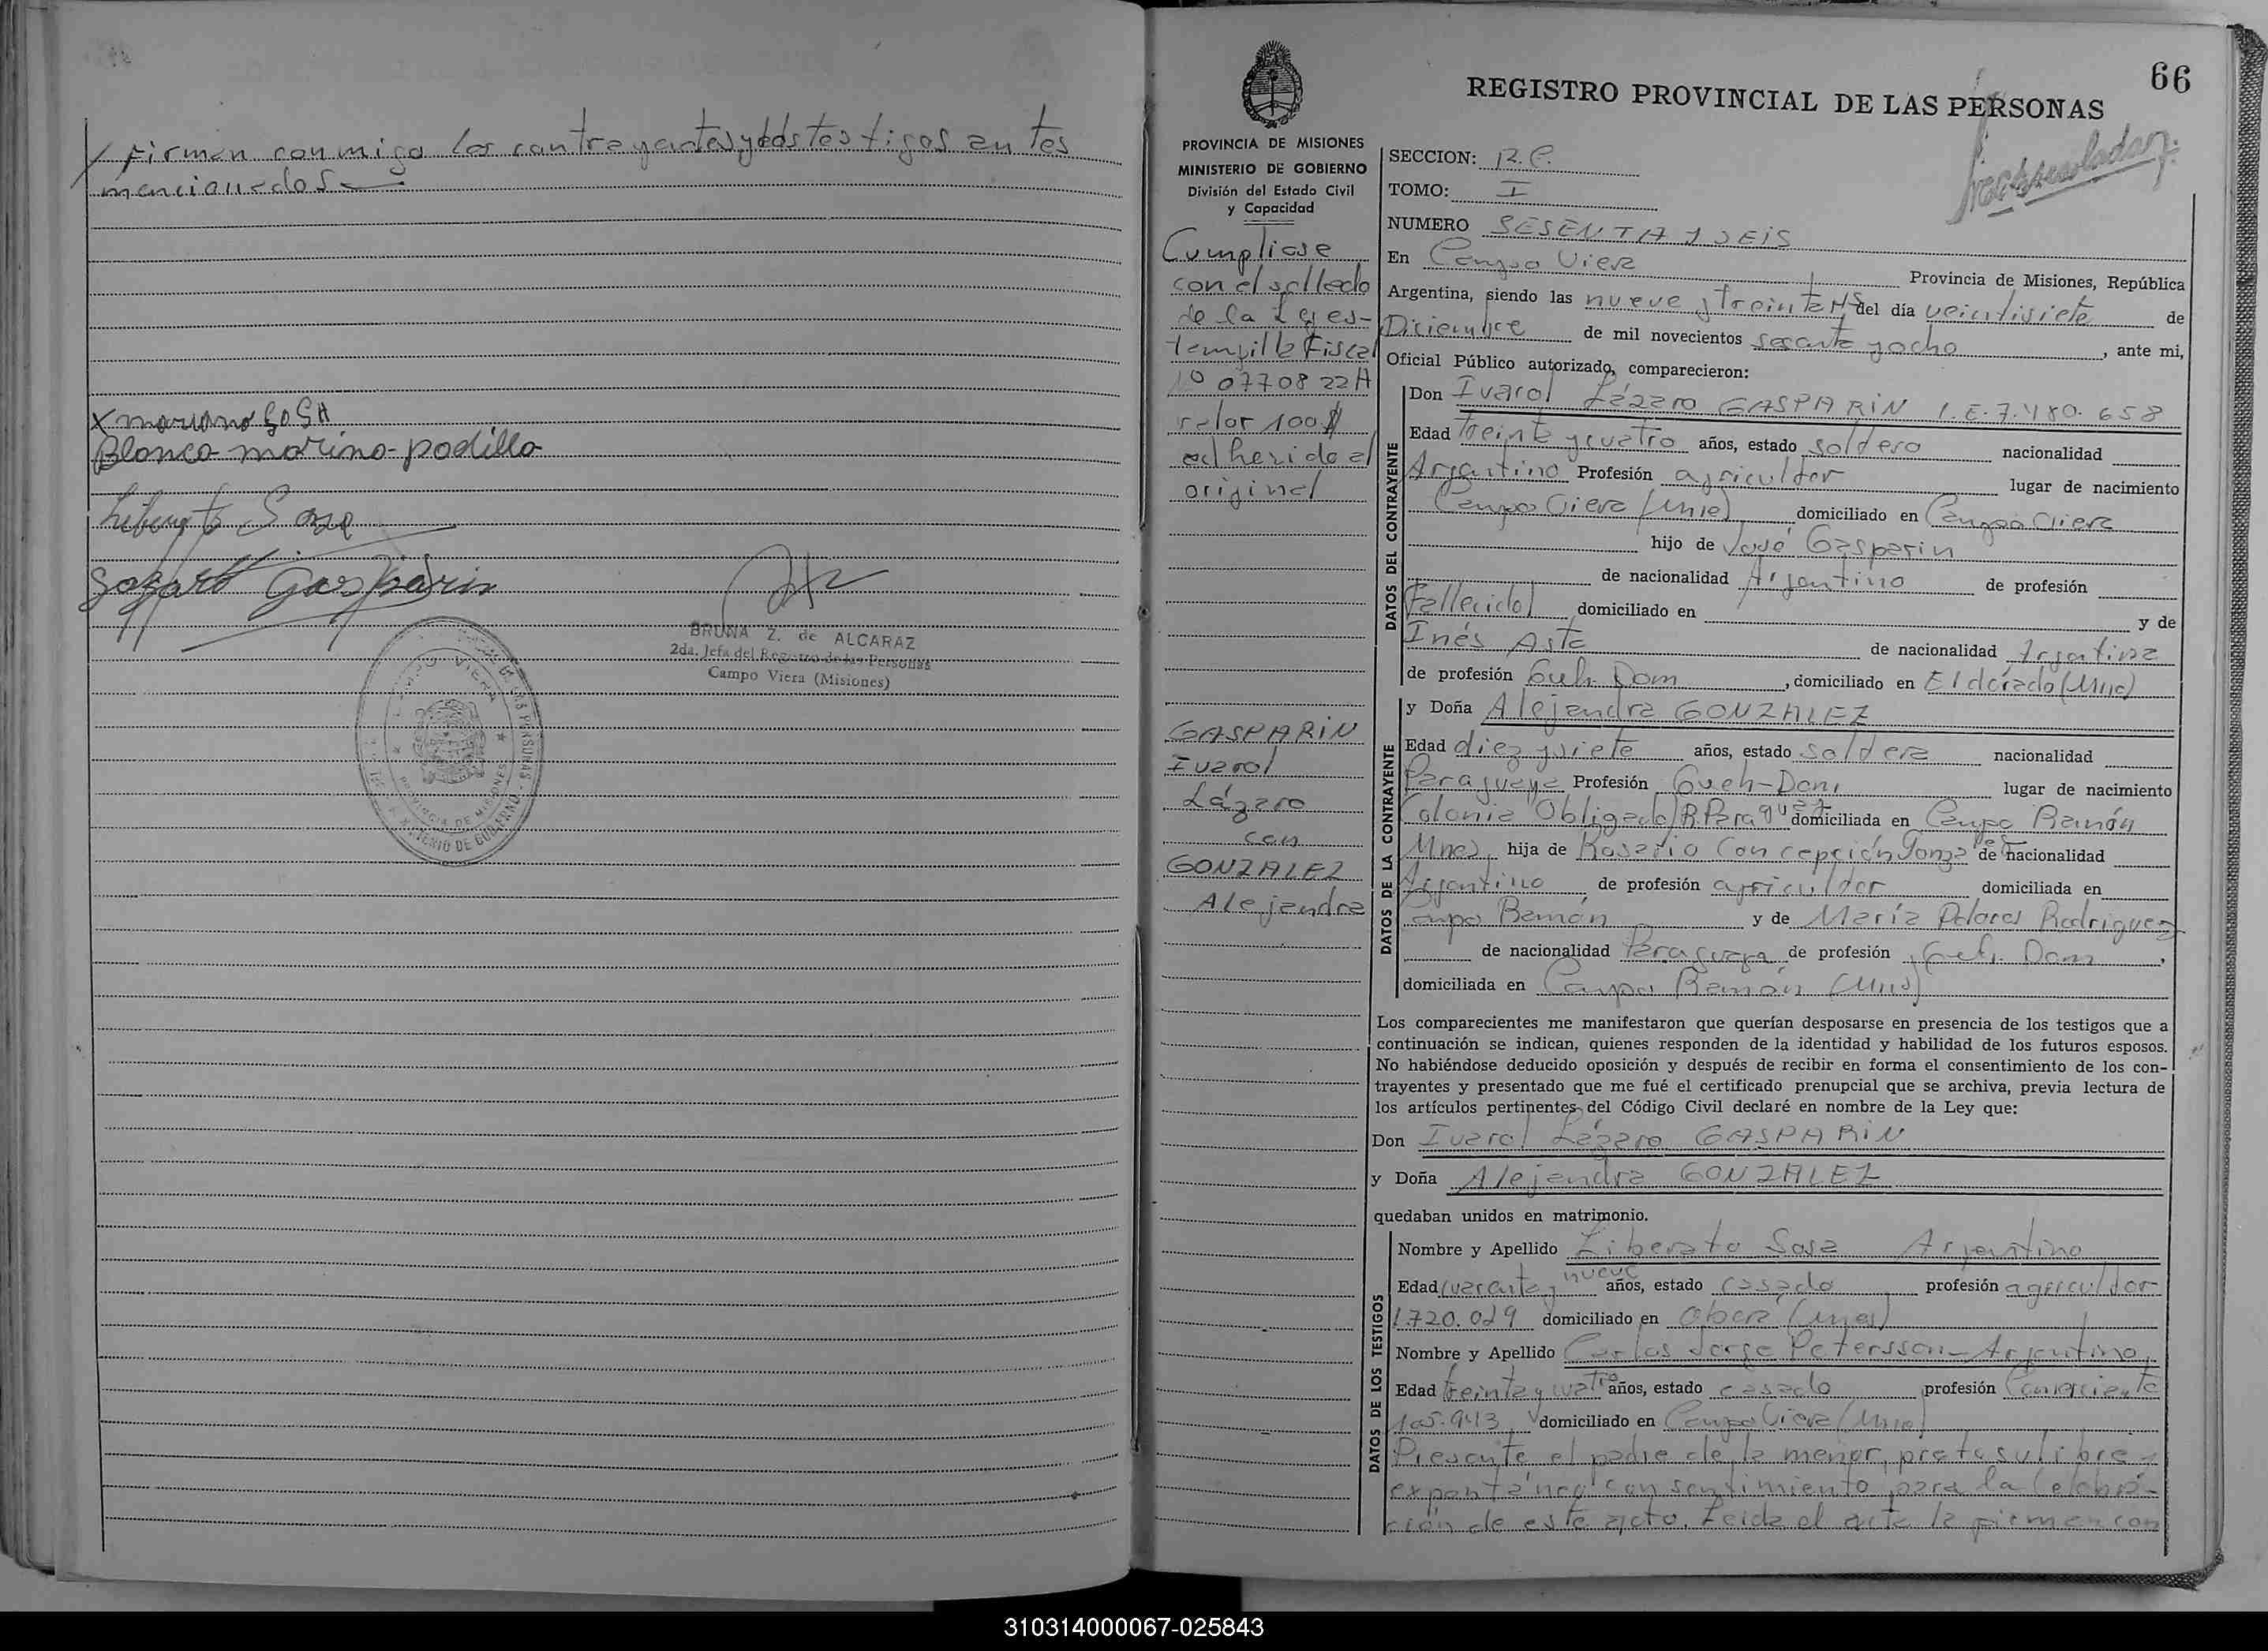 / firman conmigo los contrayentes y dos testigos en tes
mencionados
X mariano SOSA
Blanca marino-padilla
Liberato Sosa
Gaspárin
BRUNA Z. de ALCARAZ
2da. Jefa del Registro de las Personas
Campo Viera (Misiones)
CAMPO VIERA
PROVINCIA DE MISIONES
MINISTERIO DE GOBIERNO
66
REGISTRO PROVINCIAL DE LAS PERSONAS
PROVINCIA DE MISIONES
MINISTERIO DE GOBIERNO
División del Estado Civil
y Capacidad
Cumpliose
con el sellado
de la Ley es-
tampilla Fiscal
0770822A
valor 100 $
adherido al
original
GASPARIN
Ivarol
Lázaro
con
GONZALEZ
Alejandra
SECCION: R.C.
TOMO: I
NUMERO SESENTA y SEIS
En Campo Viera Provincia de Misiones, República
Argentina, siendo las nueve y treinta Hs del día veintisiete de
Diciembre de mil novecientos sesenta y ocho, ante mi,
Oficial Público autorizado, comparecieron:
DATOS DEL CONTRAYENTE
Don Ivarol Lázaro GASPARIN L.E. 7.480.658
Edad treinta y cuatro años, estado soltero nacionalidad
Argentino Profesión agricultor lugar de nacimiento
Campo Viera (Mnes) domiciliado en Campo Viera
hijo de José Gasparin
de nacionalidad Argentino de profesión
Fallecido domiciliado en y de
Inés Asta de nacionalidad Argentina
de profesión Queh. Dom, domiciliado en El dorado (Mnes)
DATOS DE LA CONTRAYENTE
y Doña Alejandra GONZALEZ
Edad diez y siete años, estado soltera nacionalidad
Paraguaya Profesión Queh-Dom. lugar de nacimiento
Colonia Obligado/R. Paraguay domiciliada en Campo Ramón
Mnes, hija de Rosario Concepción Gonzalez de nacionalidad
Argentino de profesión agricultor domiciliada en
Campo Ramón y de María Dolores Rodriguez
de nacionalidad Paraguaya de profesión Queh. Dom,
domiciliada en Campo Ramón (Mnes)
Los comparecientes me manifestaron que querían desposarse en presencia de los testigos que a
continuación se indican, quienes responden de la identidad y habilidad de los futuros esposos.
No habiéndose deducido oposición y después de recibir en forma el consentimiento de los con-
trayentes y presentado que me fué el certificado prenupcial que se archiva, previa lectura de
los artículos pertinentes del Código Civil declaré en nombre de la Ley que:
Don Ivarol Lázaro GASPARIN
y Doña Alejandra GONZALEZ
quedaban unidos en matrimonio.
DATOS DE LOS TESTIGOS
Nombre y Apellido Liberato Sosa Argentino
Edad cuarenta y nueve años, estado casado profesión agricultor
1.720.029 domiciliado en Oberá (Mnes)
Nombre y Apellido Carlos Jorge Petersson-Argentino,
Edad treinta y cuatro años, estado casado profesión Comerciante
105.943 domiciliado en Campo Viera (Mnes)
Presente el padre de la menor, presta su libre y
expontáneo consentimiento para la celebra-
ción de este acto. Leida el acta la firman con
310314000067-025843